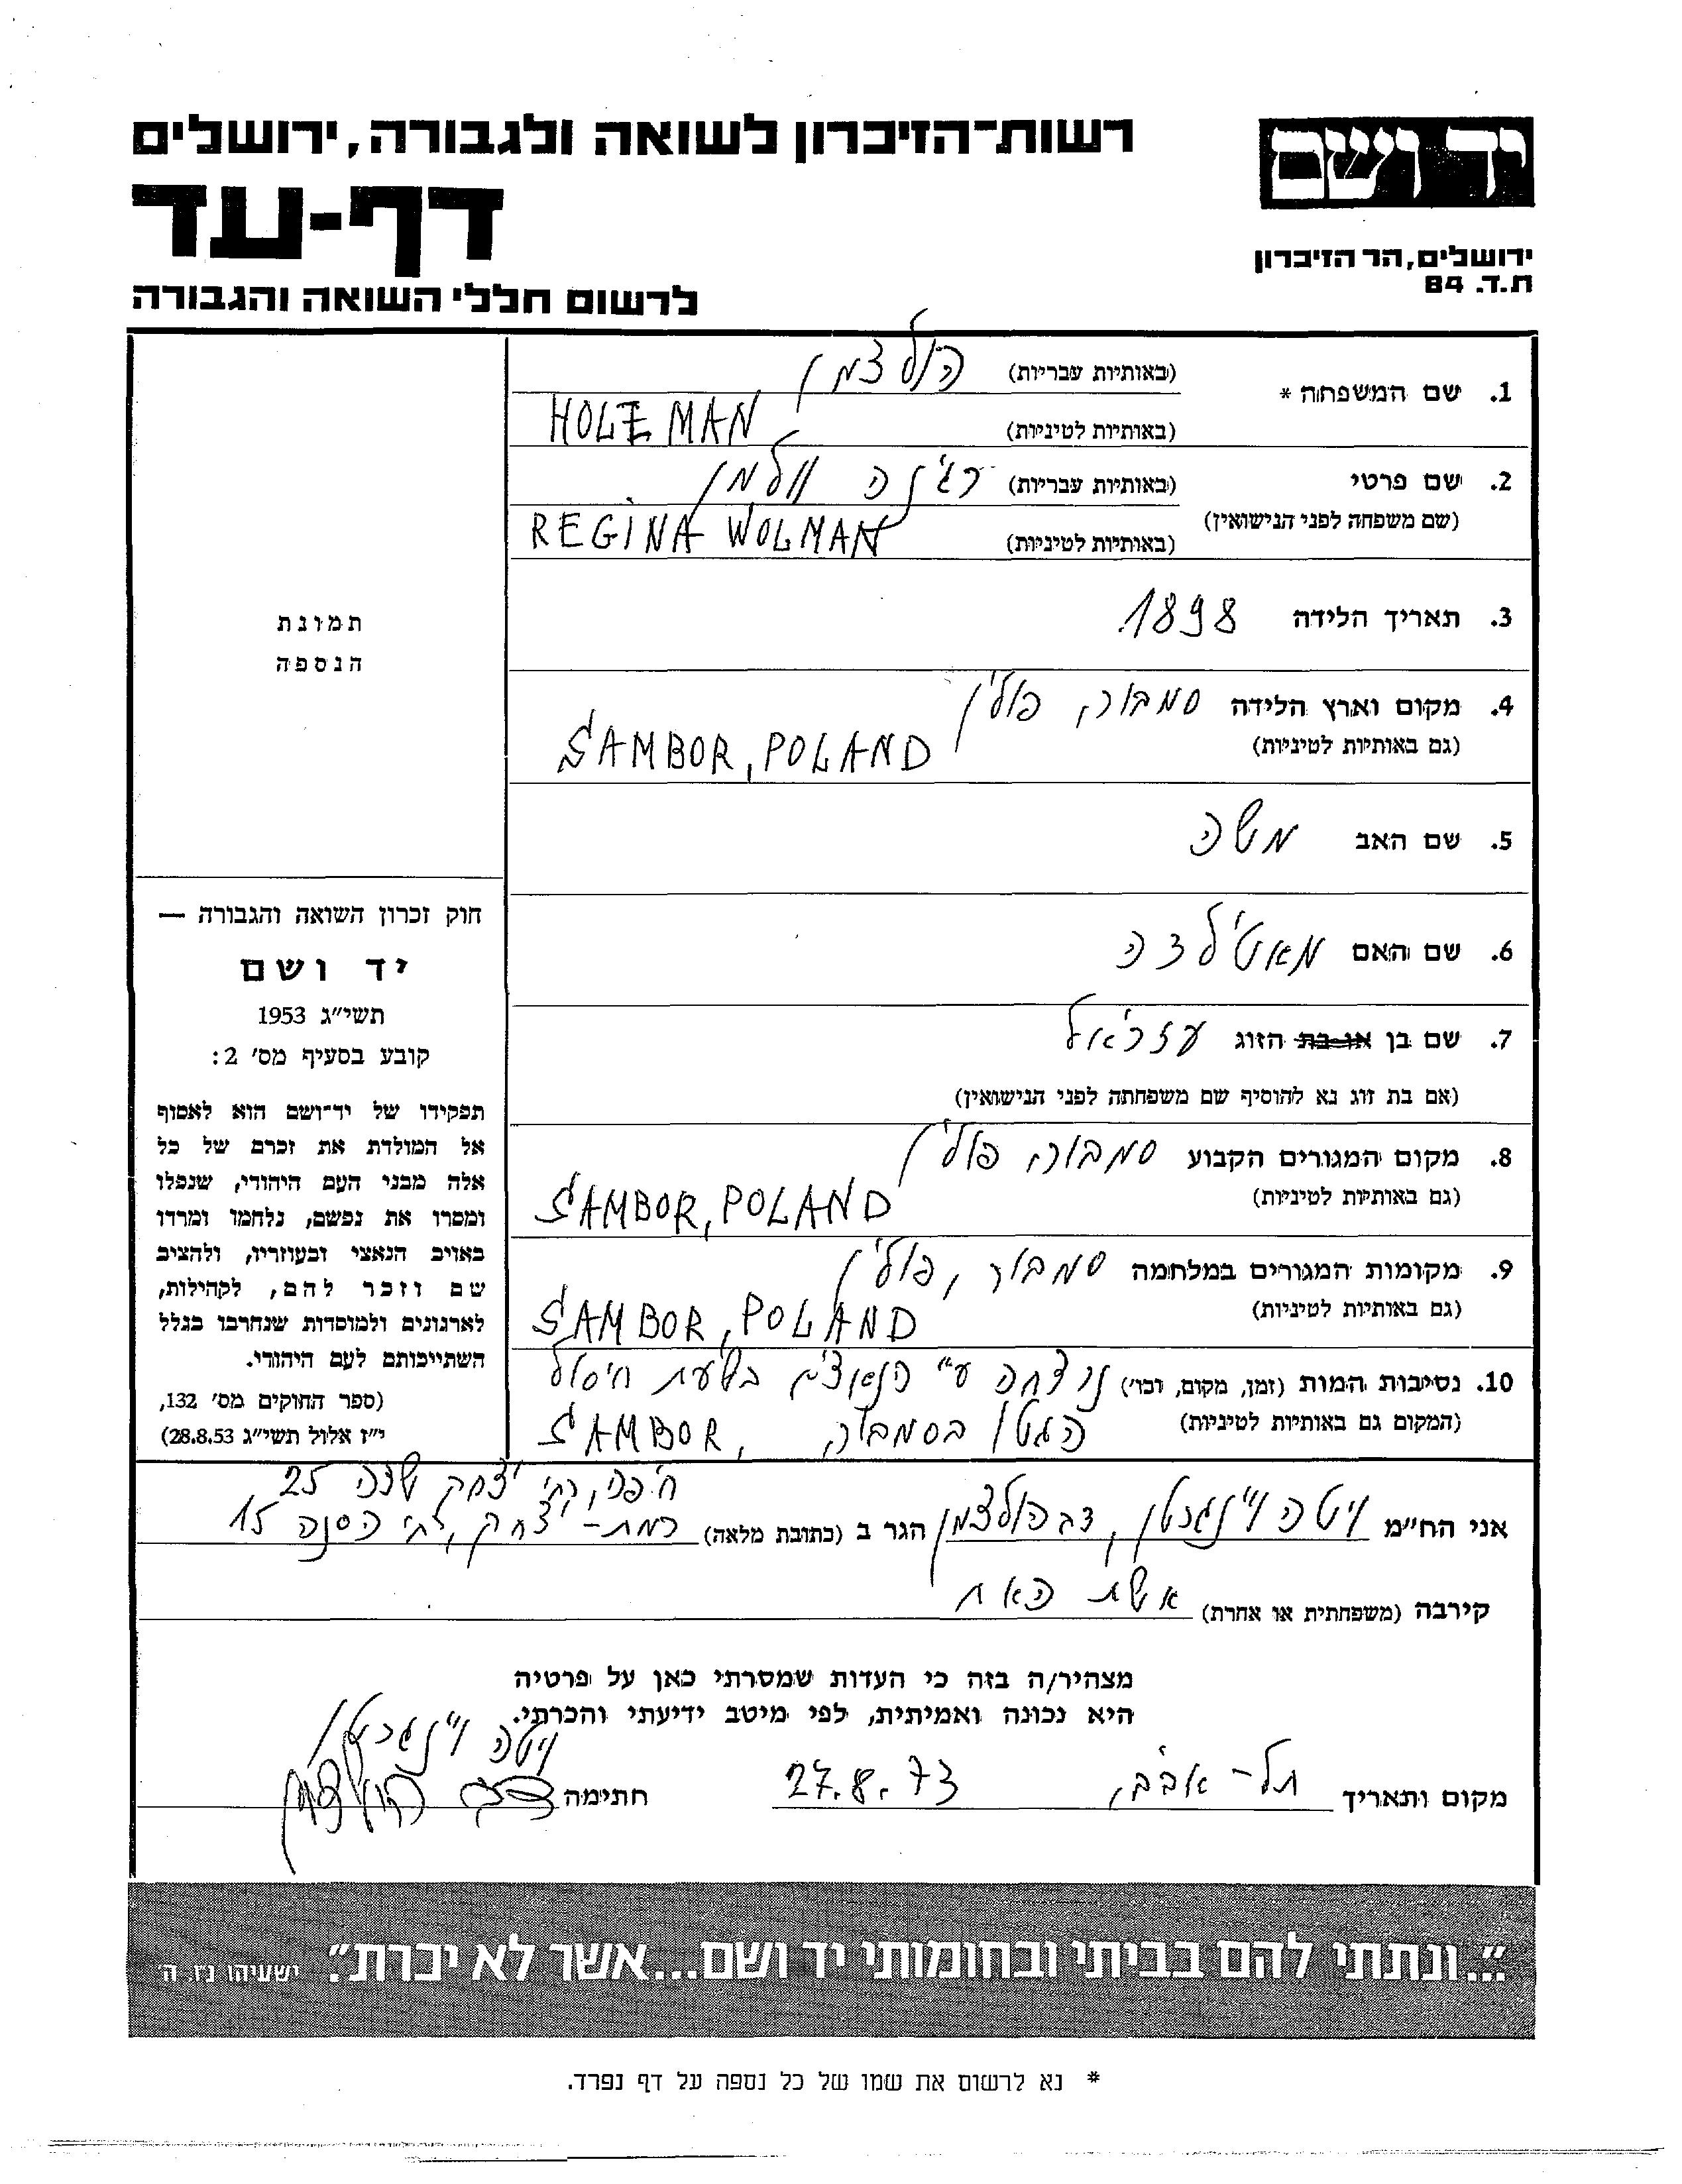 רשות-הזיכרון לשואה ולגבורה, ירושלים
דף-עד
לרשום חללי השואה והגבורה
יד ושם
ירושלים, הר הזיכרון
ת.ד. 84
1. שם המשפחה * (באותיות עבריות) הולצמן
(באותיות לטיניות) HOLZMAN
2. שם פרטי (באותיות עבריות) רג'נה וולמן
(שם משפחה לפני הנישואין) (באותיות לטיניות) REGINA WOLMAN
3. תאריך הלידה 1898
4. מקום וארץ הלידה סמבור, פולין
(גם באותיות לטיניות) SAMBOR, POLAND
5. שם האב משה
6. שם האם מאטילדה
7. שם בן או בת הזוג עזריאל
(אם בת זוג נא להוסיף שם משפחתה לפני הנישואין)
8. מקום המגורים הקבוע סמבור, פולין
(גם באותיות לטיניות) SAMBOR, POLAND
9. מקומות המגורים במלחמה סמבור, פולין
(גם באותיות לטיניות) SAMBOR, POLAND
10. נסיבות המות (זמן, מקום, וכו') נרצחה ע"י הנאצים בשעת חיסול
(המקום גם באותיות לטיניות) הגטו בסמבור, SAMBOR
תמונת
הנספה
חוק זכרון השואה והגבורה —
יד ושם
תשי״ג 1953
קובע בסעיף מס' 2:
תפקידו של יד־ושם הוא לאסוף
אל המולדת את זכרם של כל
אלה מבני העם היהודי, שנפלו
ומסרו את נפשם, נלחמו ומרדו
באויב הנאצי ובעוזריו, ולהציב
שם וזכר להם, לקהילות,
לארגונים ולמוסדות שנחרבו בגלל
השתייכותם לעם היהודי.
(ספר החוקים מס' 132,
י״ז אלול תשי״ג 28.8.53)
חיפה, רח' יצחק שדה 25
אני הח״מ ויטה ויינגרטן, דב הולצמן הגר ב (כתובת מלאה) רמת-יצחק, רח' הסנה 15
קירבה (משפחתית או אחרת) אשת האח
מצהיר/ה בזה כי העדות שמסרתי כאן על פרטיה
היא נכונה ואמיתית, לפי מיטב ידיעתי והכרתי.
ויטה ויינגרטן
מקום ותאריך תל-אביב, 27.8.73 חתימה דב הולצמן
"...ונתתי להם בביתי ובחומותי יד ושם...אשר לא יכרת". ישעיהו נו. ה'
* נא לרשום את שמו של כל נספה על דף נפרד.